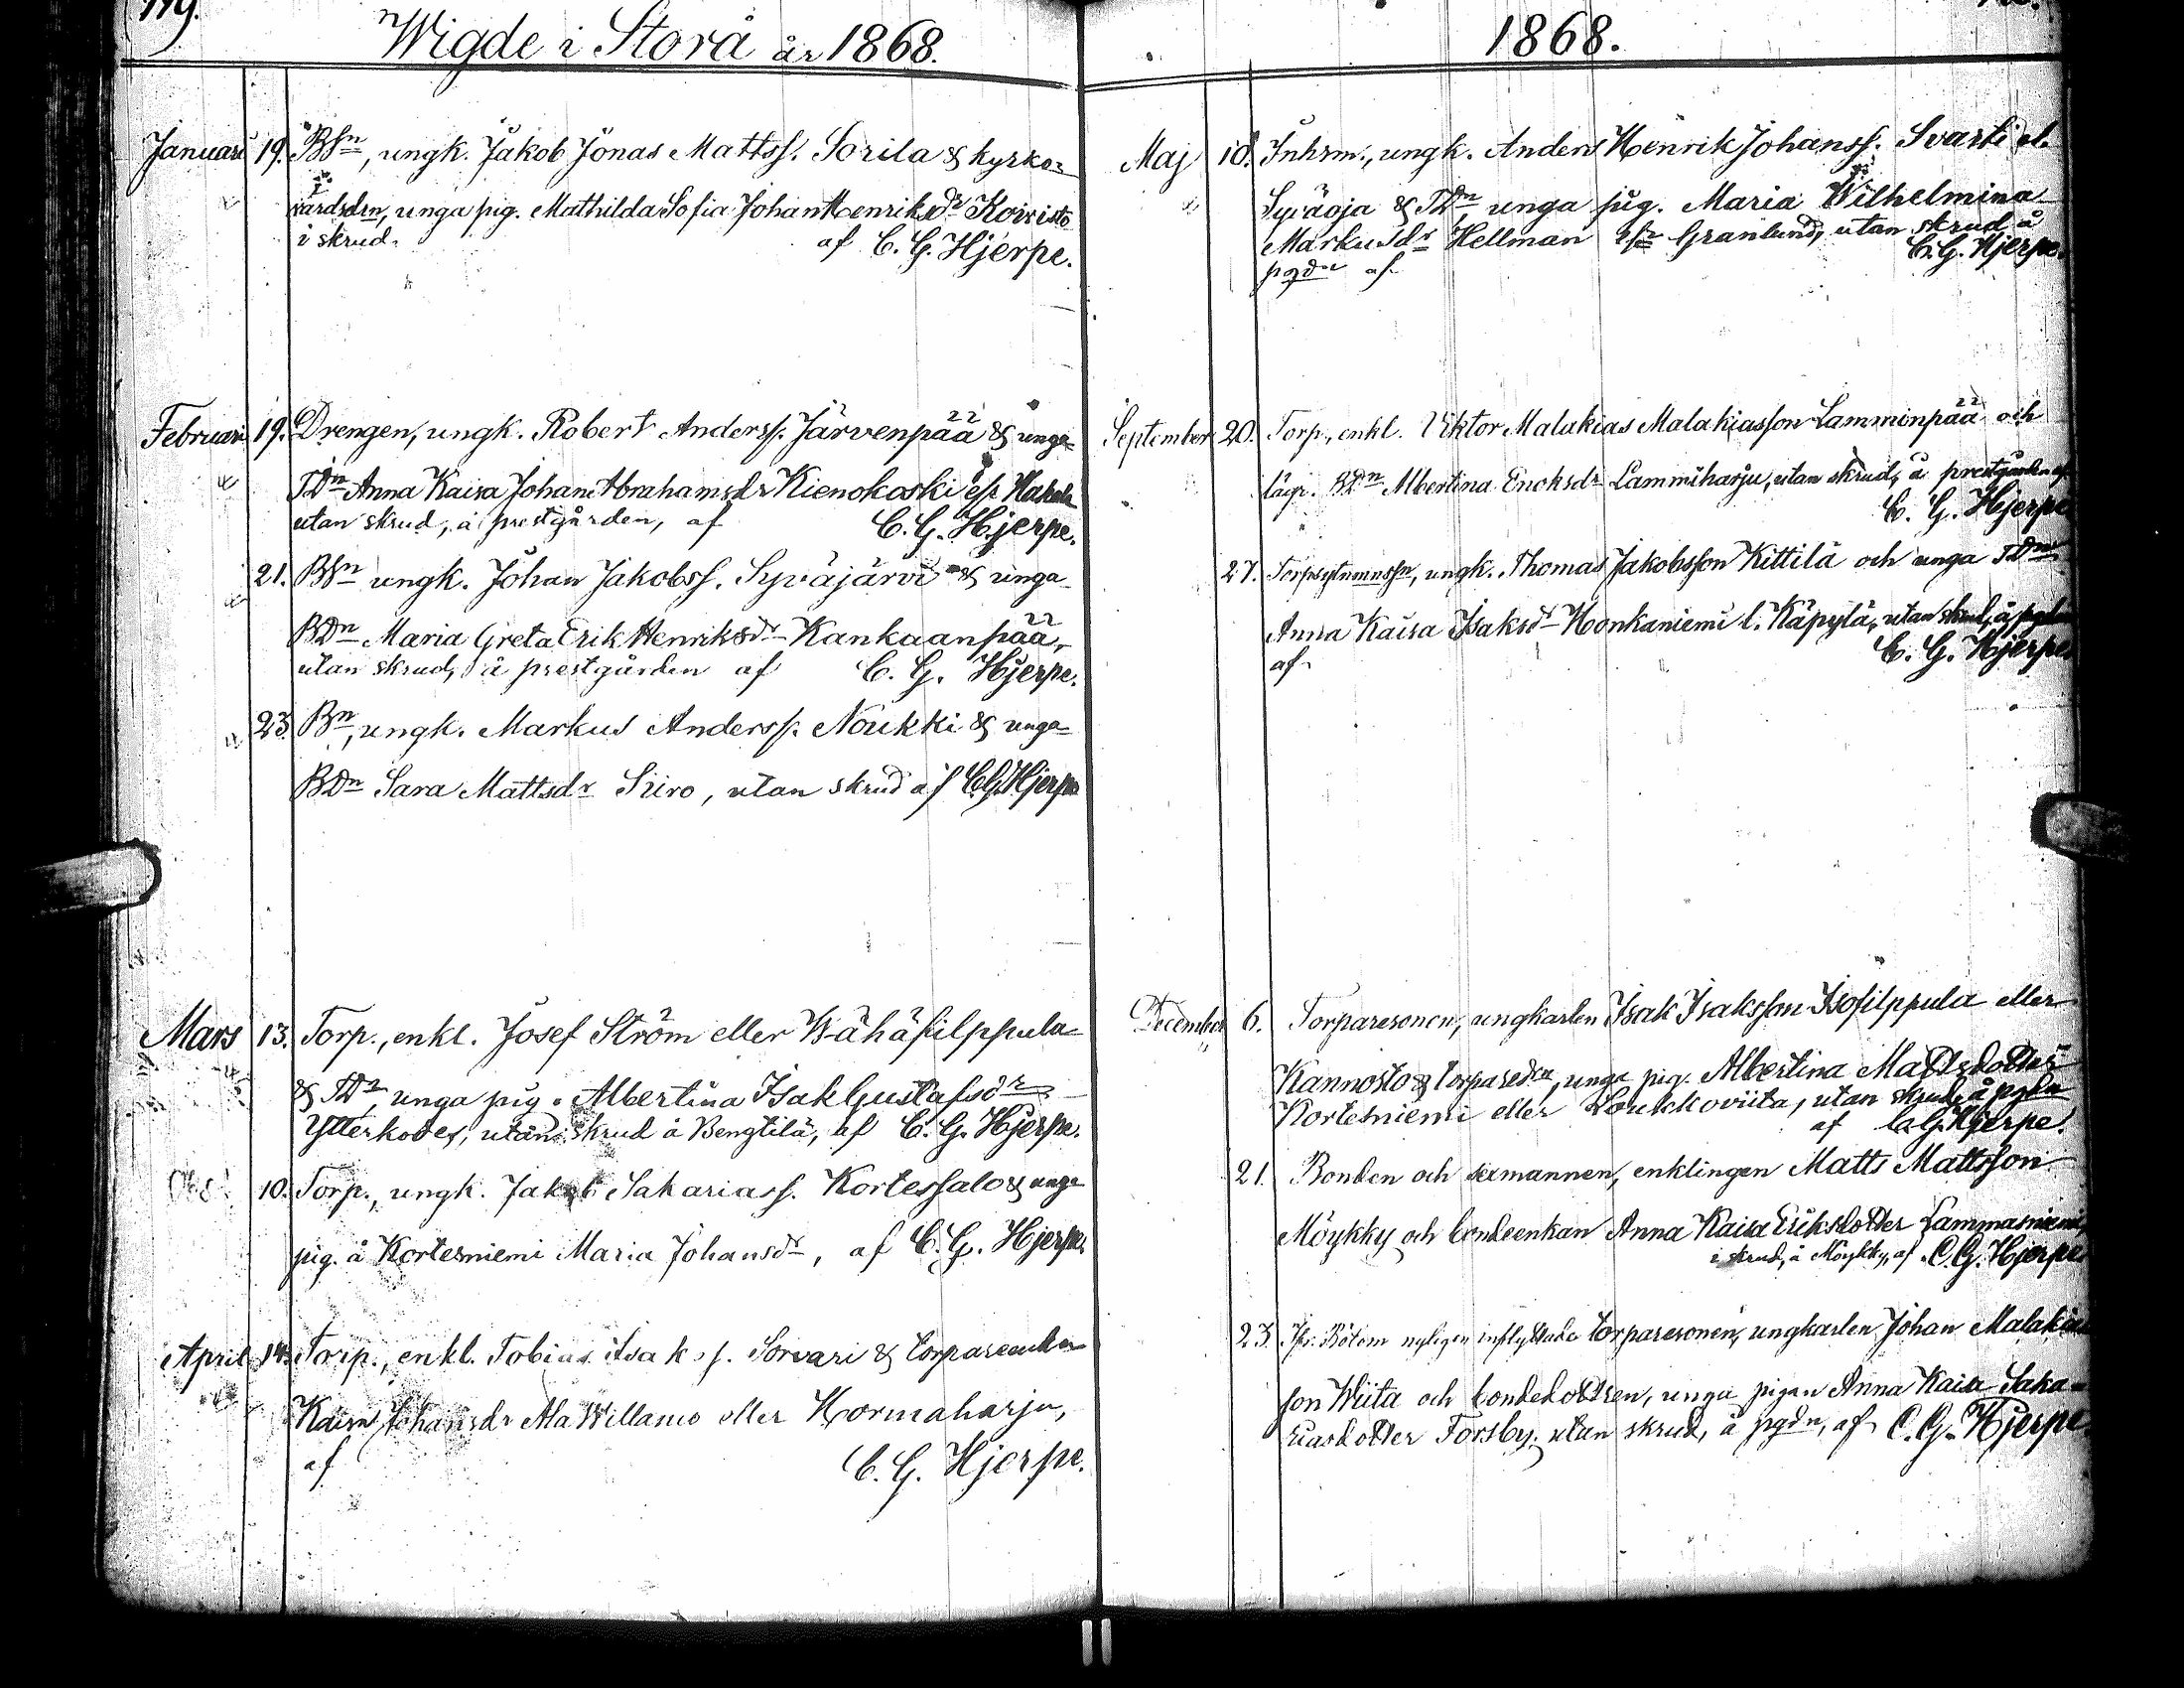 119.
Wigde i Storå år 1868.
Januari 19. BSn, ungk. Jakob Jonas Mattss. Sorila & kyrko-
värdsdrn, unga pig. Mathilda Sofia Johan Henriksdr Koivisto
i skrud. af C. G. Hjerpe.
Februari 19. Drengen, ungk. Robert Anderss. Järvenpää & unga
TDn Anna Kaisa Johan Abrahamsdr Kienokoski
utan skrud, å prestgården, af C. G. Hjerpe.
21. BSn ungk. Johan Jakobss. Syväjärvi & unga
BDn Maria Greta Erik Henriksdr Kankaanpää,
utan skrud, å prestgården af C. G. Hjerpe.
23. Bn, ungk. Markus Anderss. Noukki & unga
BDn Sara Mattsdr Siiro, utan skrud af C. G. Hjerpe
Mars 13. Torp., enkl. Josef Ström eller Wähäfilppula
& TDr, unga pig. Albertina Isak Gustafsdr
Ytterkoves, utan skrud å Bengtilä, af C. G. Hjerpe.
10. Torp., ungk. Jakob Sakariass. Kortessalo & unga
pig. å Kortesniemi Maria Johansdr, af C. G. Hjerpe.
April 14. Torp., enkl. Tobias Isakss. Sorvari & torpareenkan
Kaisa Johansdr Ala Willamo eller Hormaharju,
af C. G. Hjerpe.
1868.
Maj 18. Inhrm., ungk. Anders Henrik Johanss. Svarti el.
Syväoja & TDn unga pig. Maria Wilhelmina
Markusdr Hellman Granlund, utan skrud, å
pgdn af C. G. Hjerpe.
September 20. Torp., enkl. Viktor Malakias Malakiasson Lamminpää och
lägr. BDn Albertina Enoksdr Lammiharju, utan skrud, å prestgården af
C. G. Hjerpe
27. ungk. Thomas Jakobsson Kittilä och unga TDn
Anna Kaisa Isaksdr Honkaniemi l. Käpylä, utan skrud, å pgdn
af C. G. Hjerpe.
December 6. Torparesonen, ungkarlen Isak Isaksson Isofilppula eller
Kannosto & torparedrn, unga pig. Albertina Mattsdotter
Kortesniemi eller Loukkoviita, utan skrud, å pgdn
af C. G. Hjerpe.
21. Bonden och sexmannen, enklingen Matts Mattsson
Möykky och bondeenkan Anna Kaisa Eriksdotter Lammasniemi,
i skrud, å Möykky, af C. G. Hjerpe
23. Bötom nyligen inflyttade torparesonen, ungkarlen Johan Malakias
son Wiita och bondedottren, unga pigan Anna Kaisa Saka-
riasdotter Forsby, utan skrud, å pgdn, af C. G. Hjerpe